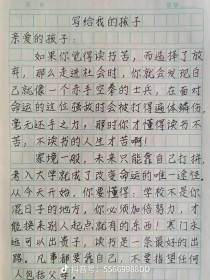 写给我的孩子
亲爱的孩子:
如果你觉得读书苦,而选择了放
弃,那么走进社会时,你就会发现自
己就像一个赤手空拳的士兵,在面对
命运的这位强敌时会被打得遍体鳞伤,
毫无还手之力,那时你才懂得读书不
苦,不读书的人生才苦啊!
家境一般,未来只能靠自己打拼,
考入大学就成了改变命运的唯一途径,
从今天开始,你要懂得:学校不是你
混日子的地方,你必须加倍努力,才
能换来别人起点就有的东西!寒门永
远可以出贵子,读书是一条最好的出
路,凡事都要靠自己,不要指望任何
人包括父母。
抖音号:5566998DD